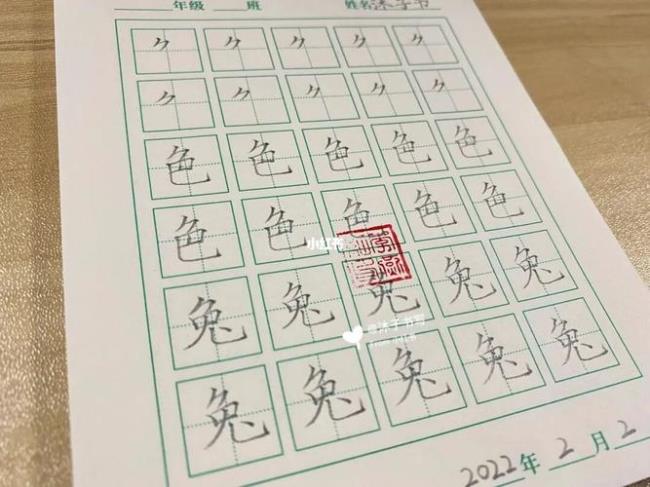 年级 班 姓名 沐子书
⺈ ⺈ ⺈ ⺈ ⺈
⺈ ⺈ ⺈ ⺈ ⺈
色 色 色 色 色
色 色 色 色 色
小红书
兔 兔 兔 兔 兔
兔 兔 兔 兔 兔
2022年 2月2